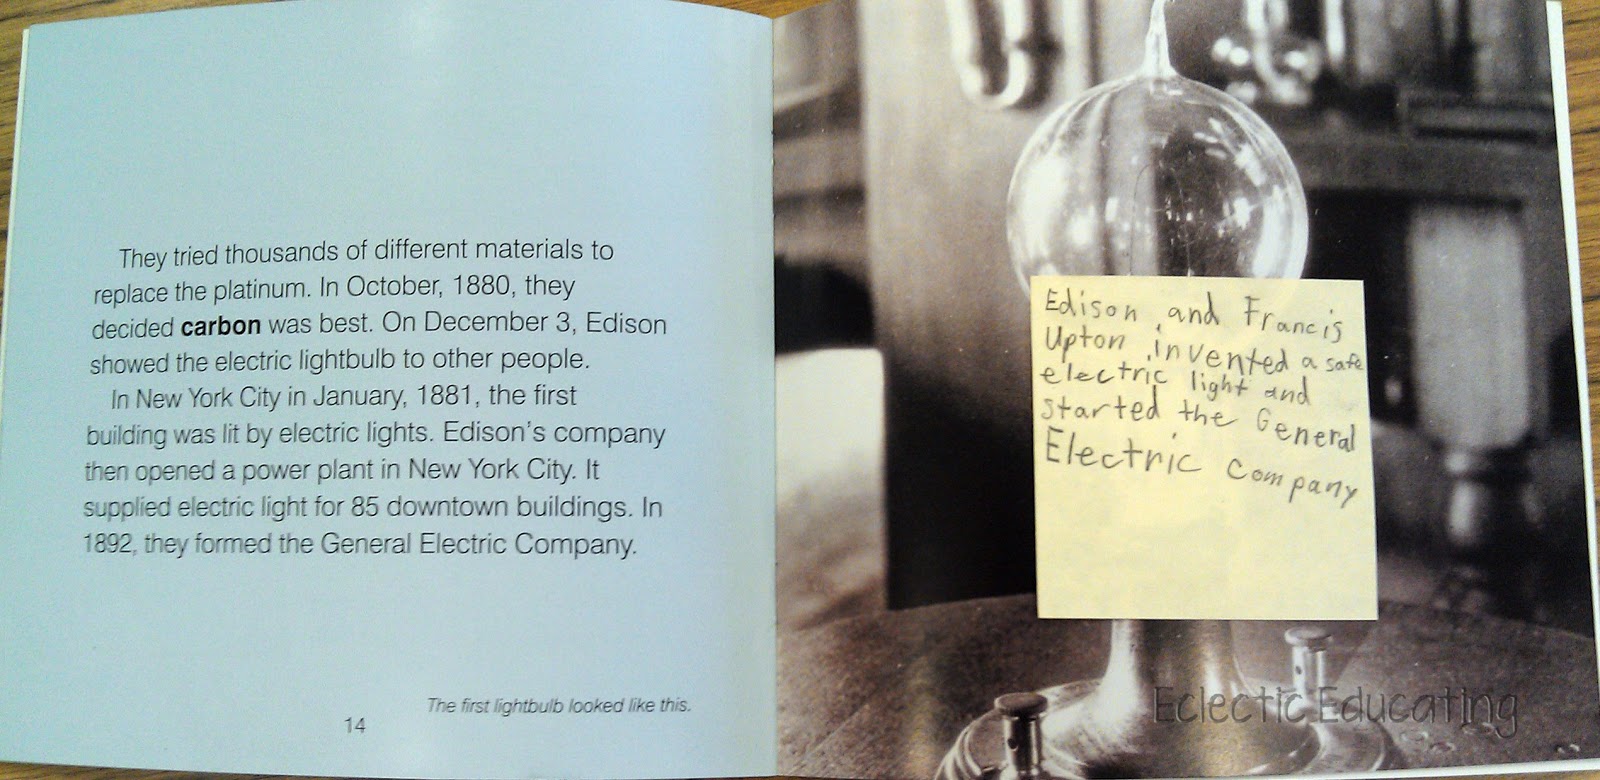 They tried thousands of different materials to
replace the platinum. In October, 1880, they
decided carbon was best. On December 3, Edison
showed the electric lightbulb to other people.
In New York City in January, 1881, the first
building was lit by electric lights. Edison's company
then opened a power plant in New York City. It
supplied electric light for 85 downtown buildings. In
1892, they formed the General Electric Company.
The first lightbulb looked like this.
14
Edison and Francis
Upton invented a safe
electric light and
started the General
Electric Company
Eclectic Educating